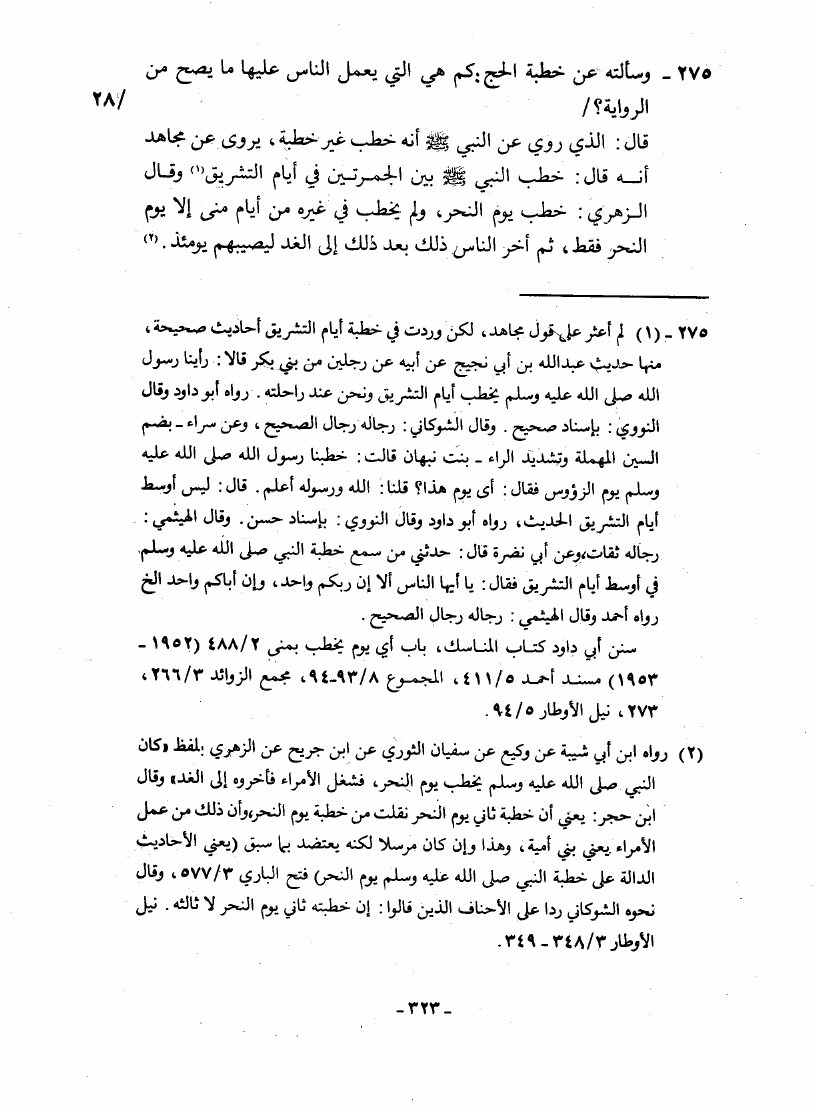 ٢٧٥ - وسألته عن خطبة الحج: كم هي التي يعمل الناس عليها ما يصح من
الرواية؟ / ٢٨/
قال: الذي روي عن النبي ﷺ أنه خطب غير خطبة، يروى عن مجاهد
أنــه قال: خطب النبي ﷺ بين الجمـرتـين في أيام التشريق(١) وقـال
الـزهري: خطب يوم النحر، ولم يخطب في غيره من أيام منى إلا يوم
النحر فقط، ثم أخر الناس ذلك بعد ذلك إلى الغد ليصيبهم يومئذ. (٢)
٢٧٥ - (١) لم أعثر على قول مجاهد، لكن وردت في خطبة أيام التشريق أحاديث صحيحة،
منها حديث عبدالله بن أبي نجيح عن أبيه عن رجلين من بني بكر قالا: رأينا رسول
الله صلى الله عليه وسلم يخطب أيام التشريق ونحن عند راحلته. رواه أبو داود وقال
النووي: بإسناد صحيح. وقال الشوكاني: رجاله رجال الصحيح، وعن سراء - بضم
السين المهملة وتشديد الراء - بنت نبهان قالت: خطبنا رسول الله صلى الله عليه
وسلم يوم الرؤوس فقال: أى يوم هذا؟ قلنا: الله ورسوله أعلم. قال: ليس أوسط
أيام التشريق الحديث، رواه أبو داود وقال النووي: بإسناد حسن. وقال الهيثمي:
رجاله ثقات، وعن أبي نضرة قال: حدثني من سمع خطبة النبي صلى الله عليه وسلم
في أوسط أيام التشريق فقال: يا أيها الناس ألا إن ربكم واحد، وإن أباكم واحد الخ
رواه أحمد وقال الهيثمي: رجاله رجال الصحيح.
سنن أبي داود كتـاب المنـاسك، باب أي يوم يخطب بمنى ٤٨٨/٢ (١٩٥٢ -
١٩٥٣) مسنـد أحمـد ٤١١/٥، المجمـوع ٩٣/٨-٩٤، مجمع الزوائد ٢٦٦/٣،
٢٧٣، نيل الأوطار ٩٤/٥.
(٢) رواه ابن أبي شيبة عن وكيع عن سفيان الثوري عن ابن جريح عن الزهري بلفظ «كان
النبي صلى الله عليه وسلم يخطب يوم النحر، فشغل الأمراء فأخروه إلى الغد» وقال
ابن حجر: يعني أن خطبة ثاني يوم النحر نقلت من خطبة يوم النحر، وأن ذلك من عمل
الأمراء يعني بني أمية، وهذا وإن كان مرسلا لكنه يعتضد بما سبق (يعني الأحاديث
الدالة على خطبة النبي صلى الله عليه وسلم يوم النحر) فتح الباري ٥٧٧/٣، وقال
نحوه الشوكاني ردا على الأحناف الذين قالوا: إن خطبته ثاني يوم النحر لا ثالثه. نيل
الأوطار ٣٤٨/٣ - ٣٤٩.
- ٣٢٣ -